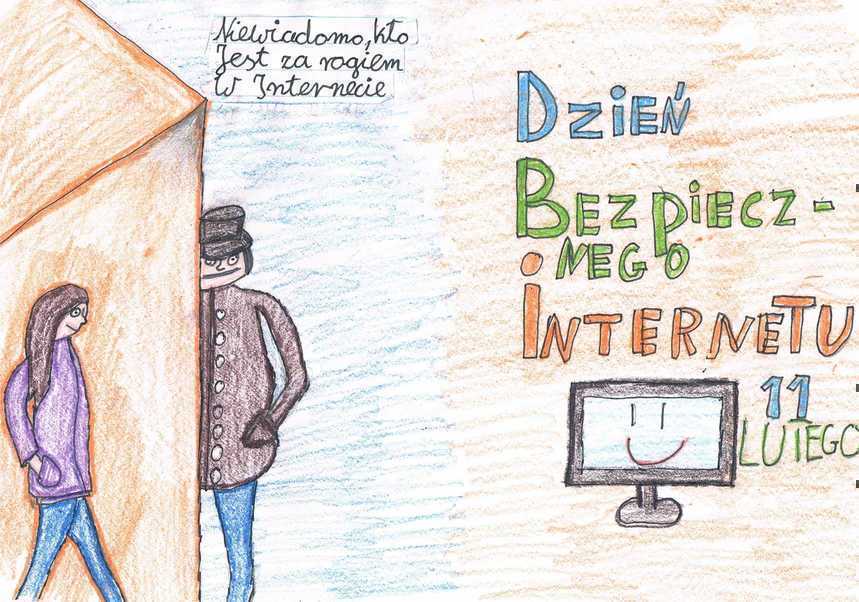 Niewiadomo, kto
Jest za rogiem
W Internecie
DZIEŃ
BEZPIECZ-
NEGO
INTERNETU
11
LUTEGO